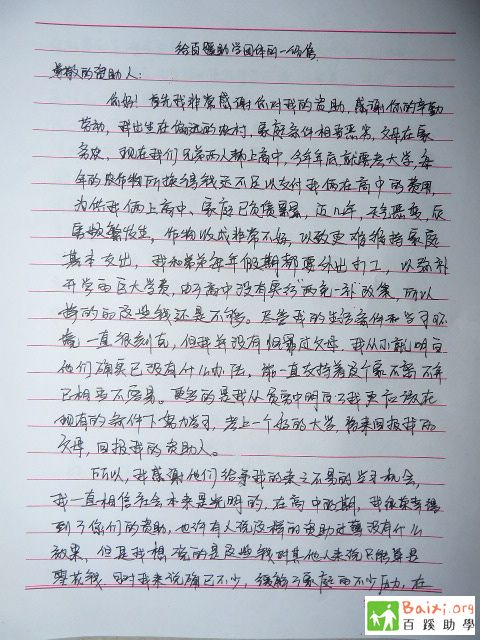 给百蹊助学团体的一封信
尊敬的资助人：
你好！首先我非常感谢你对我的资助，感谢你的辛勤
劳动，我出生在偏远的农村，家庭条件相当恶劣，父母在家
务农，现在我们兄弟两人都上高中，今年年底就要考大学，每
年的农作物所换得钱还不足以支付我俩在高中的费用，
为供我俩上高中，家庭已负债累累，近几年，天气恶劣，灾
害频繁发生，作物收成非常不好，以致更难维持家庭
基本支出，我和弟弟每年假期都要外出打工，以弥补
开学的巨大学费，由于高中没有实行"两免一补"政策，所以
挣的的这些钱还是不够。尽管我的生活条件和学习环
境一直很刻苦，但我并没有归罪过父母，我从小就明白
他们确实已没有什么办法，能一直支持着这个家不离不弃
已相当不容易。更多的是我从贫穷中明白了我更应该在
现有的条件下努力学习，考上一个好的大学，将来回报我的
父母，回报我的资助人。
所以，我感谢他们给予我的来之不易的学习机会，
我一直相信社会本来是光明的，在高中时期，我很荣幸得
到了你们的资助，也许有人说这样的资助过程没有什么
效果，但是我想说的是这些钱对其他人来说只能算是
零花钱，但对我来说确已不少，缓解了家庭的不少压力，在
Baixi.org
百蹊助學